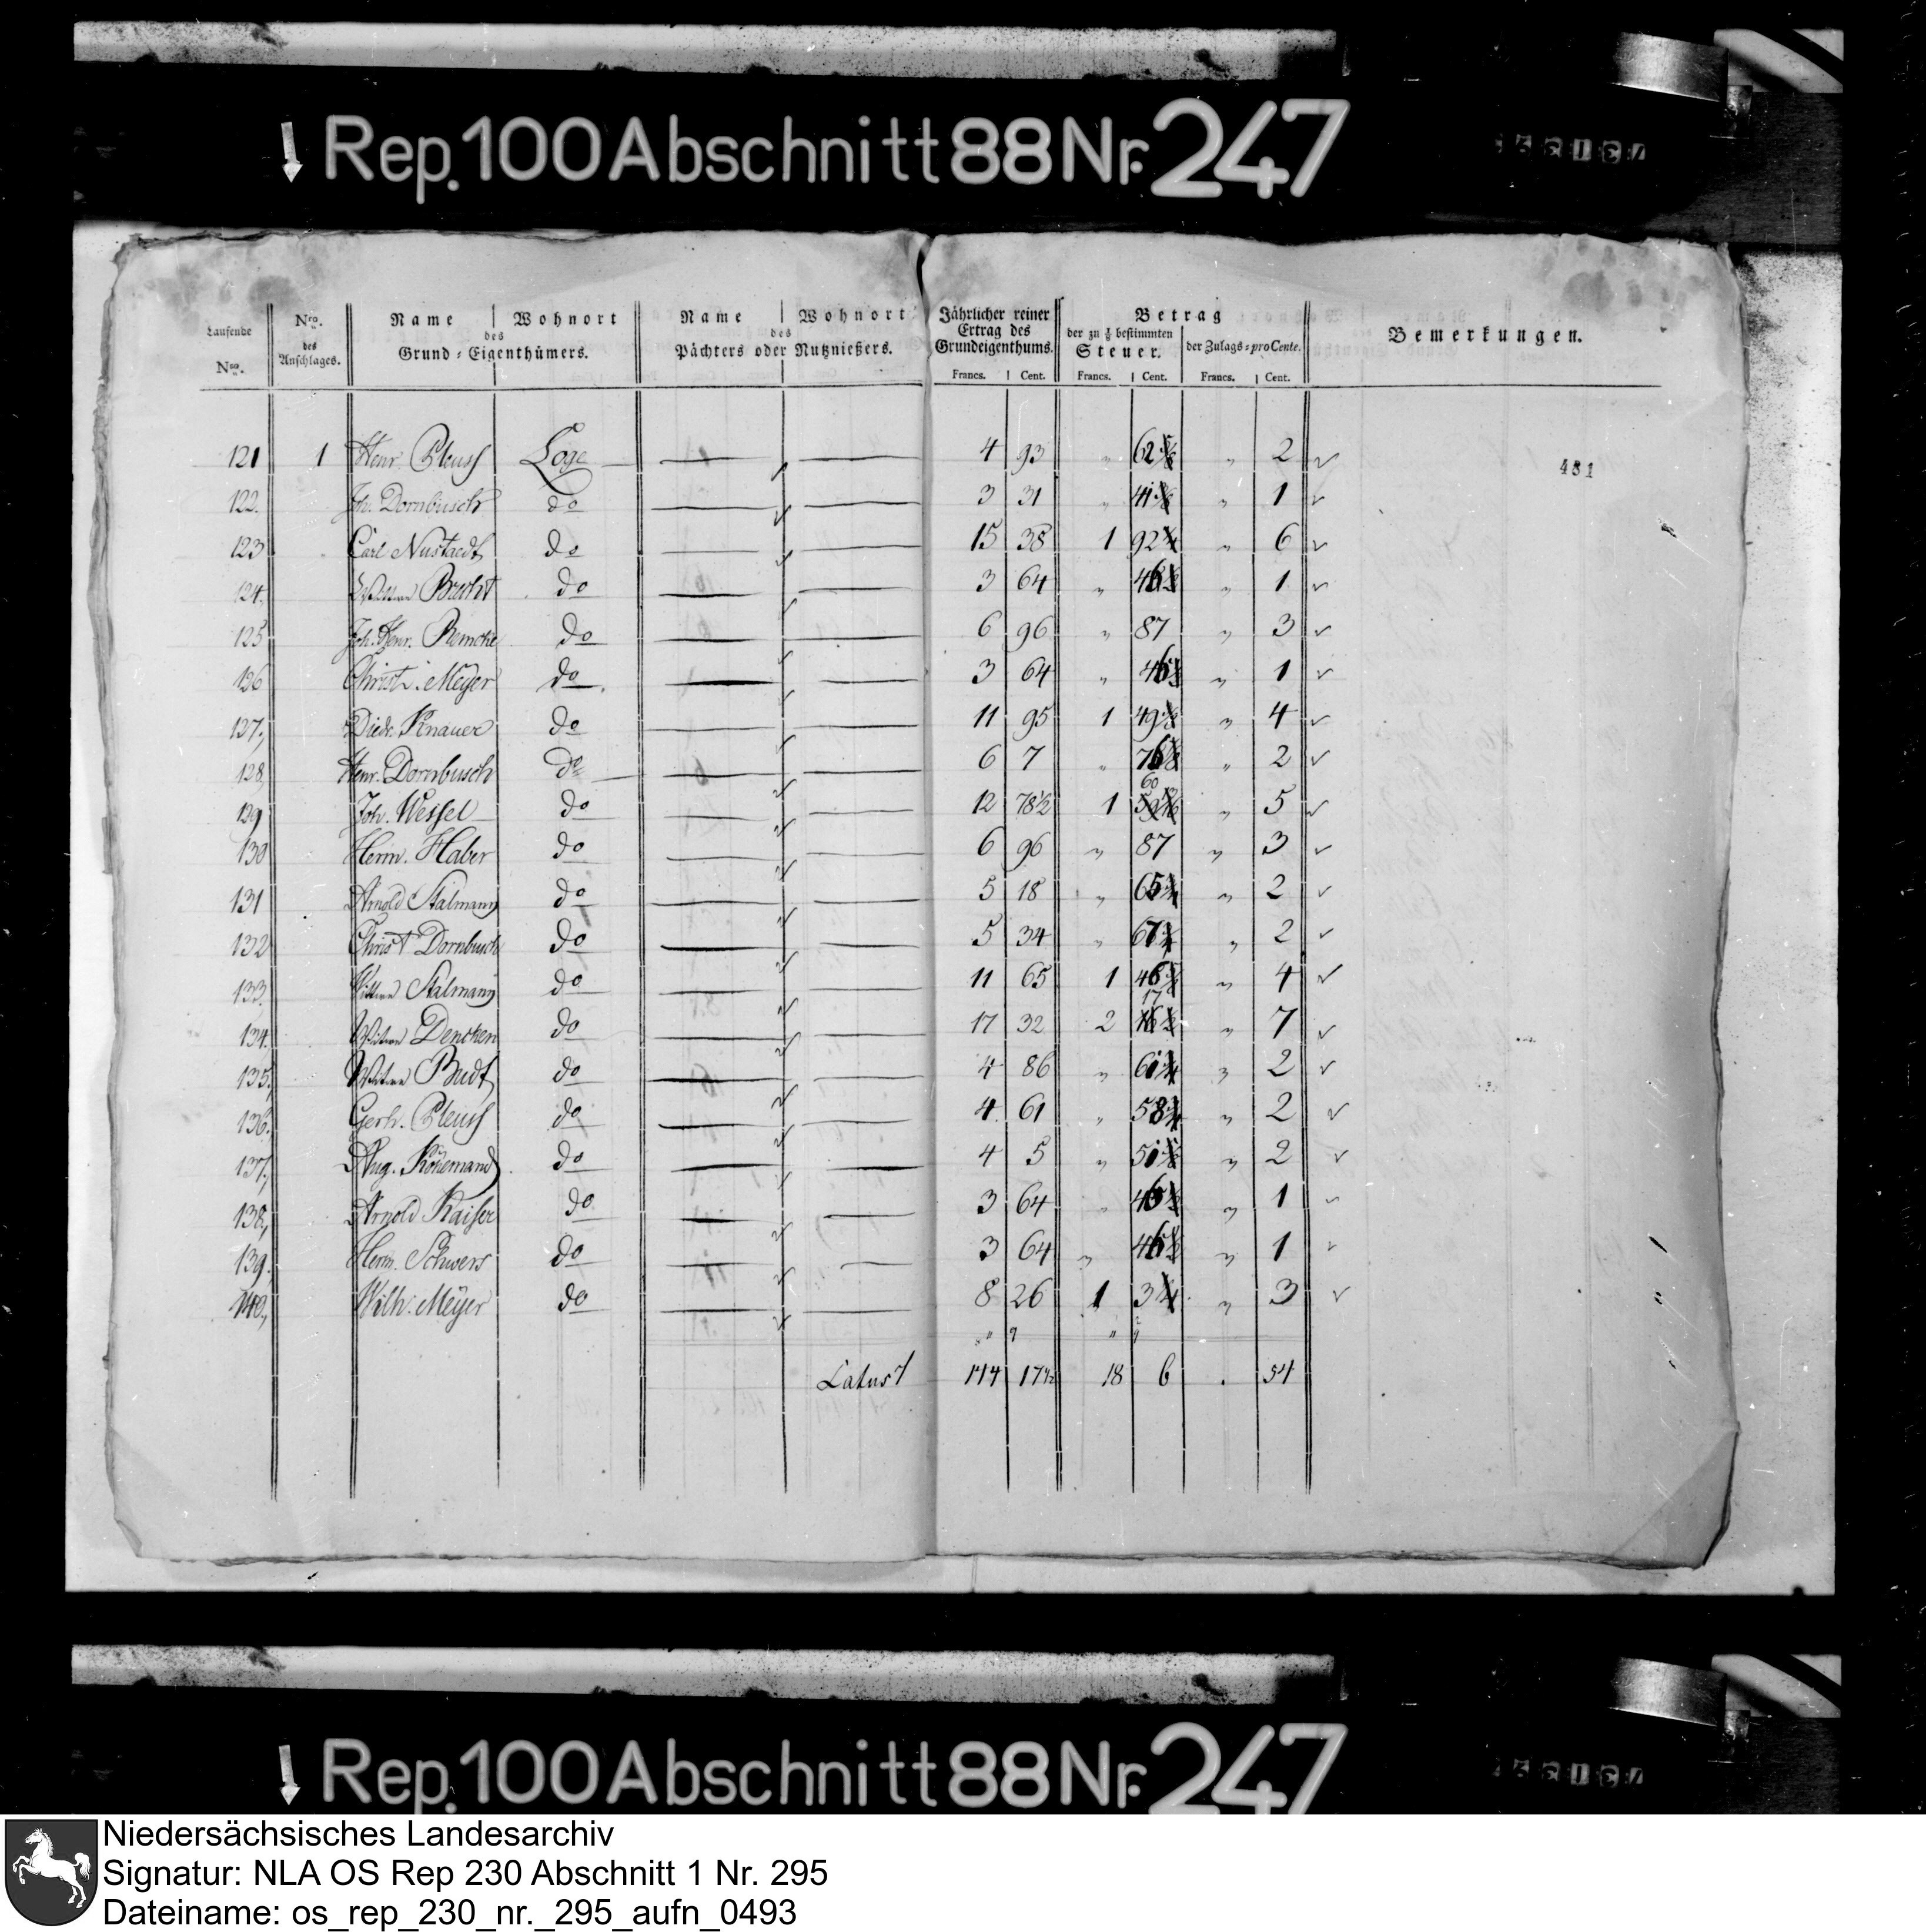 Rep. 100 Abschnitt 88 Nr. 247
Laufende Nro. | Nro. des Anschlages. | Name | Wohnort des Grund-Eigenthümers. | Name | Wohnort des Pächters oder Nutznießers. | Jährlicher reiner Ertrag des Grundeigenthums. Francs. | Cent. | Betrag der zu 1/8 bestimmten Steuer. Francs. | Cent. | der Zulags-pro Cente. Francs. | Cent. | Bemerkungen.
481
121 1 Henr. Pleuss Loge 4 93 " 62 " 2
122. Joh. Dornbusch do 3 31 " 41 " 1
123 Carl Nustaedt do 15 38 1 92 " 6
124. Wittwe Brecht do 3 64 " 46 " 1
125 Joh. Henr. Remcke do 6 96 " 87 " 3
126 Christ. Meÿer do 3 64 " 46 " 1
127, Diedr. Knauer do 11 95 1 49 " 4
128 Henr. Dornbusch do 6 7 " 76 " 2
129 Joh. Wessel do 12 78 1/2 1 60 " 5
130 Herm. Haber do 6 96 " 87 " 3
131 Arnold Stalmann do 5 18 " 65 " 2
132 Christ Dornbusch do 5 34 " 67 " 2
133. Wittwe Stalmann do 11 65 1 46 " 4
134. Wittwe Dencken do 17 32 2 17 " 7
135, Wittwe Budt do 4 86 " 61 " 2
136. Gerh. Pleuss do 4 61 " 58 " 2
137, Aug. do 4 5 " 51 " 2
138, Arnold Kaiser do 3 64 " 46 " 1
139. Herm. Schwers do 3 64 " 46 " 1
140, Wilh. Meÿer do 8 26 1 3 " 3
Latus 144 17 1/2 18 6 . 54
Rep. 100 Abschnitt 88 Nr. 247
Niedersächsisches Landesarchiv
Signatur: NLA OS Rep 230 Abschnitt 1 Nr. 295
Dateiname: os_rep_230_nr._295_aufn_0493